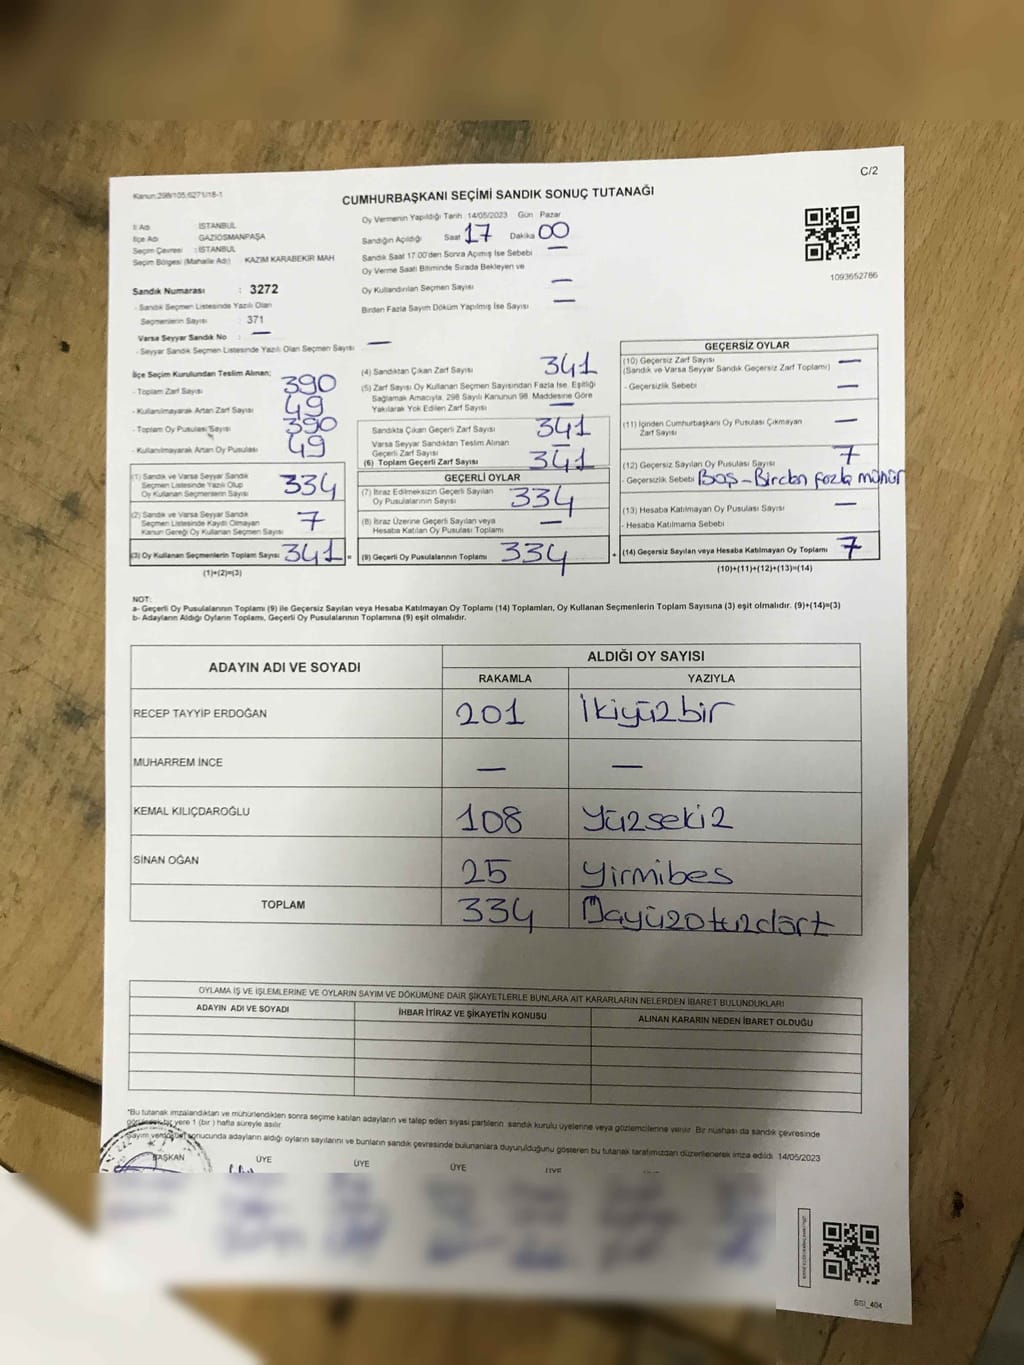 C/2
Kanun:298/105;6271/18-1
CUMHURBAŞKANI SEÇİMİ SANDIK SONUÇ TUTANAĞI
İl Adı İSTANBUL
İlçe Adı GAZİOSMANPAŞA
Seçim Çevresi : İSTANBUL
Seçim Bölgesi (Mahalle Adı) KAZIM KARABEKİR MAH
Sandık Numarası : 3272
- Sandık Seçmen Listesinde Yazılı Olan
Seçmenlerin Sayısı : 371
Varsa Seyyar Sandık No : —
- Seyyar Sandık Seçmen Listesinde Yazılı Olan Seçmen Sayısı —
Oy Vermenin Yapıldığı Tarih :14/05/2023 Gün Pazar
Sandığın Açıldığı Saat 17 Dakika 00
Sandık Saat 17:00'den Sonra Açılmış İse Sebebi —
Oy Verme Saati Bitiminde Sırada Bekleyen ve
Oy Kullandırılan Seçmen Sayısı —
Birden Fazla Sayım Döküm Yapılmış İse Sayısı —
1093652786
İlçe Seçim Kurulundan Teslim Alınan;
- Toplam Zarf Sayısı 390
- Kullanılmayarak Artan Zarf Sayısı 49
- Toplam Oy Pusulası Sayısı 390
- Kullanılmayarak Artan Oy Pusulası 49
(1) Sandık ve Varsa Seyyar Sandık
Seçmen Listesinde Yazılı Olup
Oy Kullanan Seçmenlerin Sayısı 334
(2) Sandık ve Varsa Seyyar Sandık
Seçmen Listesinde Kaydı Olmayan
Kanun Gereği Oy Kullanan Seçmen Sayısı 7
(3) Oy Kullanan Seçmenlerin Toplam Sayısı 341 =
(1)+(2)=(3)
(4) Sandıktan Çıkan Zarf Sayısı 341
(5) Zarf Sayısı Oy Kullanan Seçmen Sayısından Fazla İse, Eşitliği
Sağlamak Amacıyla, 298 Sayılı Kanunun 98. Maddesine Göre
Yakılarak Yok Edilen Zarf Sayısı —
Sandıkta Çıkan Geçerli Zarf Sayısı 341
Varsa Seyyar Sandıktan Teslim Alınan
Geçerli Zarf Sayısı —
(6) Toplam Geçerli Zarf Sayısı 341
GEÇERLİ OYLAR
(7) İtiraz Edilmeksizin Geçerli Sayılan
Oy Pusulasının Sayısı 334
(8) İtiraz Üzerine Geçerli Sayılan veya
Hesaba Katılan Oy Pusulası Toplamı —
(9) Geçerli Oy Pusulalarının Toplamı 334 +
GEÇERSİZ OYLAR
(10) Geçersiz Zarf Sayısı —
(Sandık ve Varsa Seyyar Sandık Geçersiz Zarf Toplamı)
- Geçersizlik Sebebi —
(11) İçinden Cumhurbaşkanı Oy Pusulası Çıkmayan
Zarf Sayısı —
(12) Geçersiz Sayılan Oy Pusulası Sayısı 7
- Geçersizlik Sebebi Boş-Birden fazla mühür
(13) Hesaba Katılmayan Oy Pusulası Sayısı —
- Hesaba Katılmama Sebebi
(14) Geçersiz Sayılan veya Hesaba Katılmayan Oy Toplamı 7
(10)+(11)+(12)+(13)=(14)
NOT:
a- Geçerli Oy Pusulalarının Toplamı (9) ile Geçersiz Sayılan veya Hesaba Katılmayan Oy Toplamı (14) Toplamları, Oy Kullanan Seçmenlerin Toplam Sayısına (3) eşit olmalıdır. (9)+(14)=(3)
b- Adayların Aldığı Oyların Toplamı, Geçerli Oy Pusulalarının Toplamına (9) eşit olmalıdır.
ADAYIN ADI VE SOYADI
ALDIĞI OY SAYISI
RAKAMLA YAZIYLA
RECEP TAYYİP ERDOĞAN 201 İkiyüzbir
MUHARREM İNCE — —
KEMAL KILIÇDAROĞLU 108 Yüzsekiz
SİNAN OĞAN 25 Yirmibes
TOPLAM 334
OYLAMA İŞ VE İŞLEMLERİNE VE OYLARIN SAYIM VE DÖKÜMÜNE DAİR ŞİKAYETLERLE BUNLARA AİT KARARLARIN NELERDEN İBARET BULUNDUKLARI
ADAYIN ADI VE SOYADI İHBAR İTİRAZ VE ŞİKAYETİN KONUSU ALINAN KARARIN NEDEN İBARET OLDUĞU
*Bu tutanak imzalandıktan ve mühürlendikten sonra seçime katılan adayların ve talep eden siyasi partilerin sandık kurulu üyelerine veya gözlemcilerine verilir. Bir nüshası da sandık çevresinde
bir yere 1 (bir ) hafta süreyle asılır.
sonucunda adayların aldığı oyların sayılarını ve bunların sandık çevresinde bulunanlara duyurulduğunu gösteren bu tutanak tarafımızdan düzenlenerek imza edildi. 14/05/2023
BAŞKAN ÜYE ÜYE ÜYE ÜYE
SSİ_404